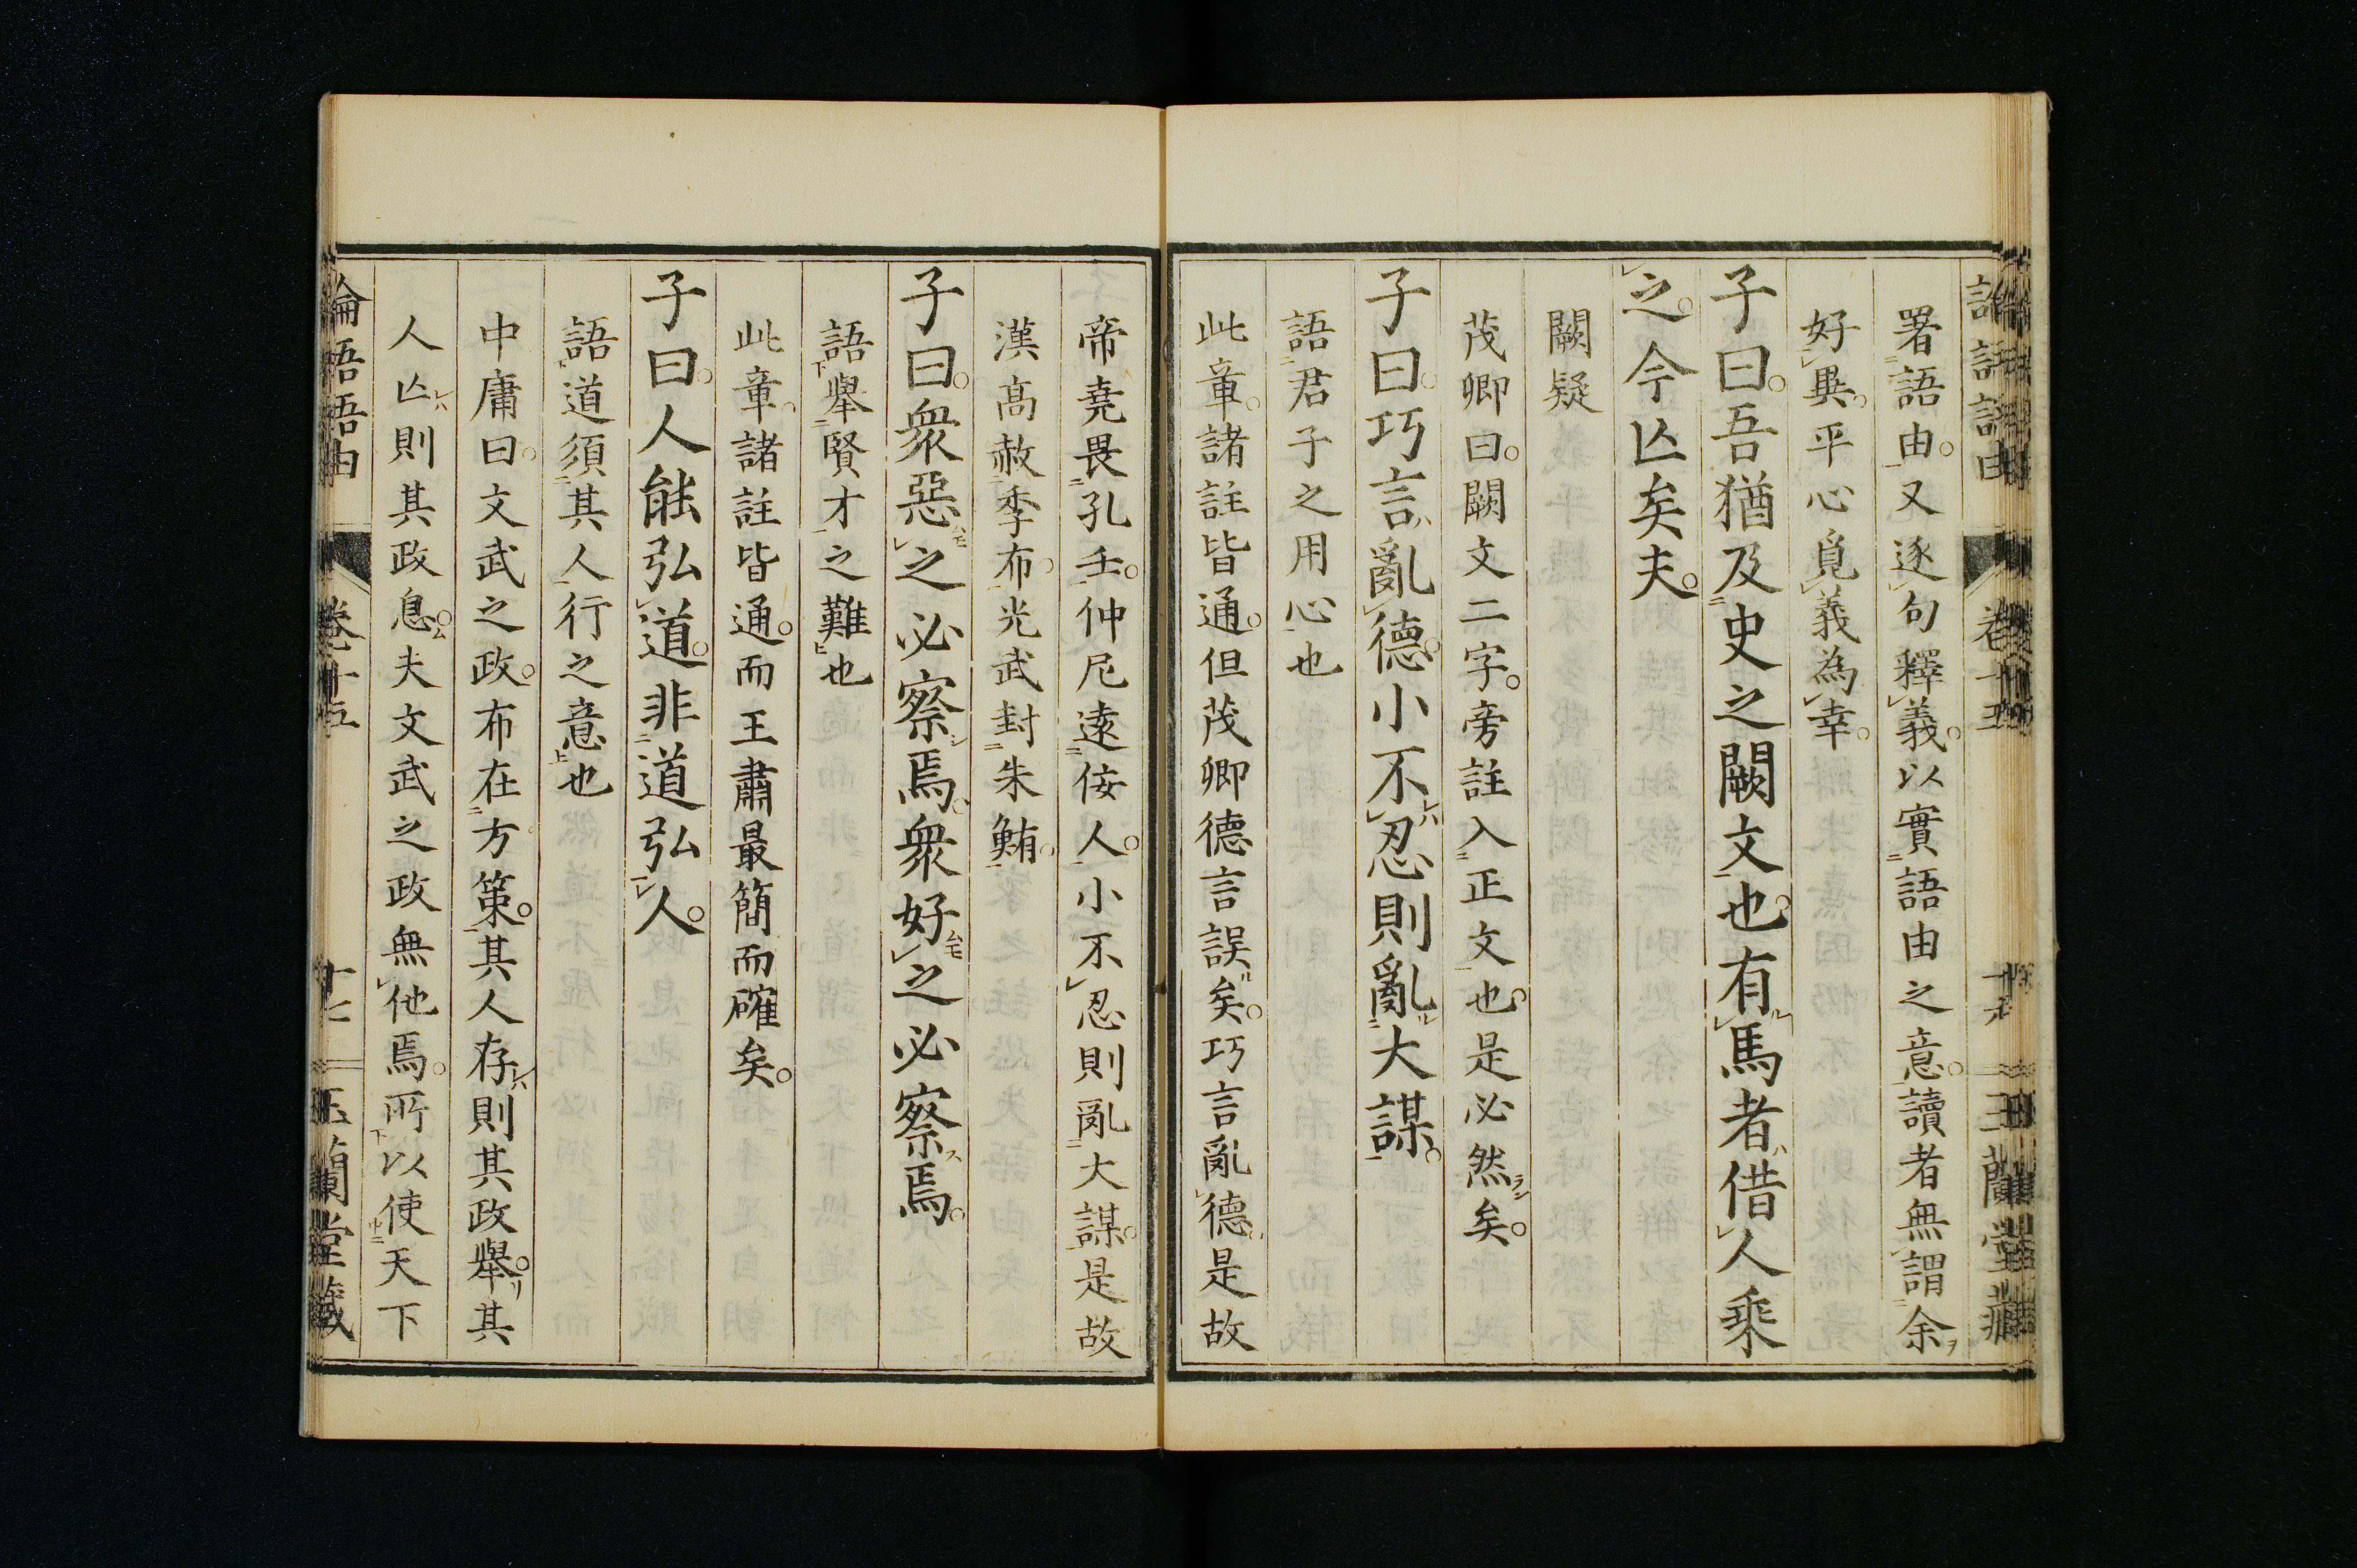 論語語由 卷十五 玉蘭堂藏
署語由。又逐句釋義。以實語由之意。讀者無謂余
好異。平心覓義為幸。
子曰。吾猶及史之闕文也。有馬者借人乘
之。今亾矣夫。
闕疑
茂卿曰。闕文二字。旁註入正文也。是必然矣。
子曰。巧言亂德。小不忍則亂大謀。
語君子之用心也
此章。諸註皆通。但茂卿德言誤矣。巧言亂德。是故
帝堯畏孔壬。仲尼遠佞人。小不忍則亂大謀。是故
漢高赦季布。光武封朱鮪。
子曰。衆惡之必察焉。衆好之必察焉。
語舉賢才之難也
此章。諸註皆通。而王肅最簡而確矣。
子曰。人能弘道。非道弘人。
語道須其人行之意也
中庸曰。文武之政。布在方策。其人存則其政舉。其
人亾則其政息。夫文武之政無他焉。所以使天下
論語語由 卷十五 十七 玉蘭堂藏